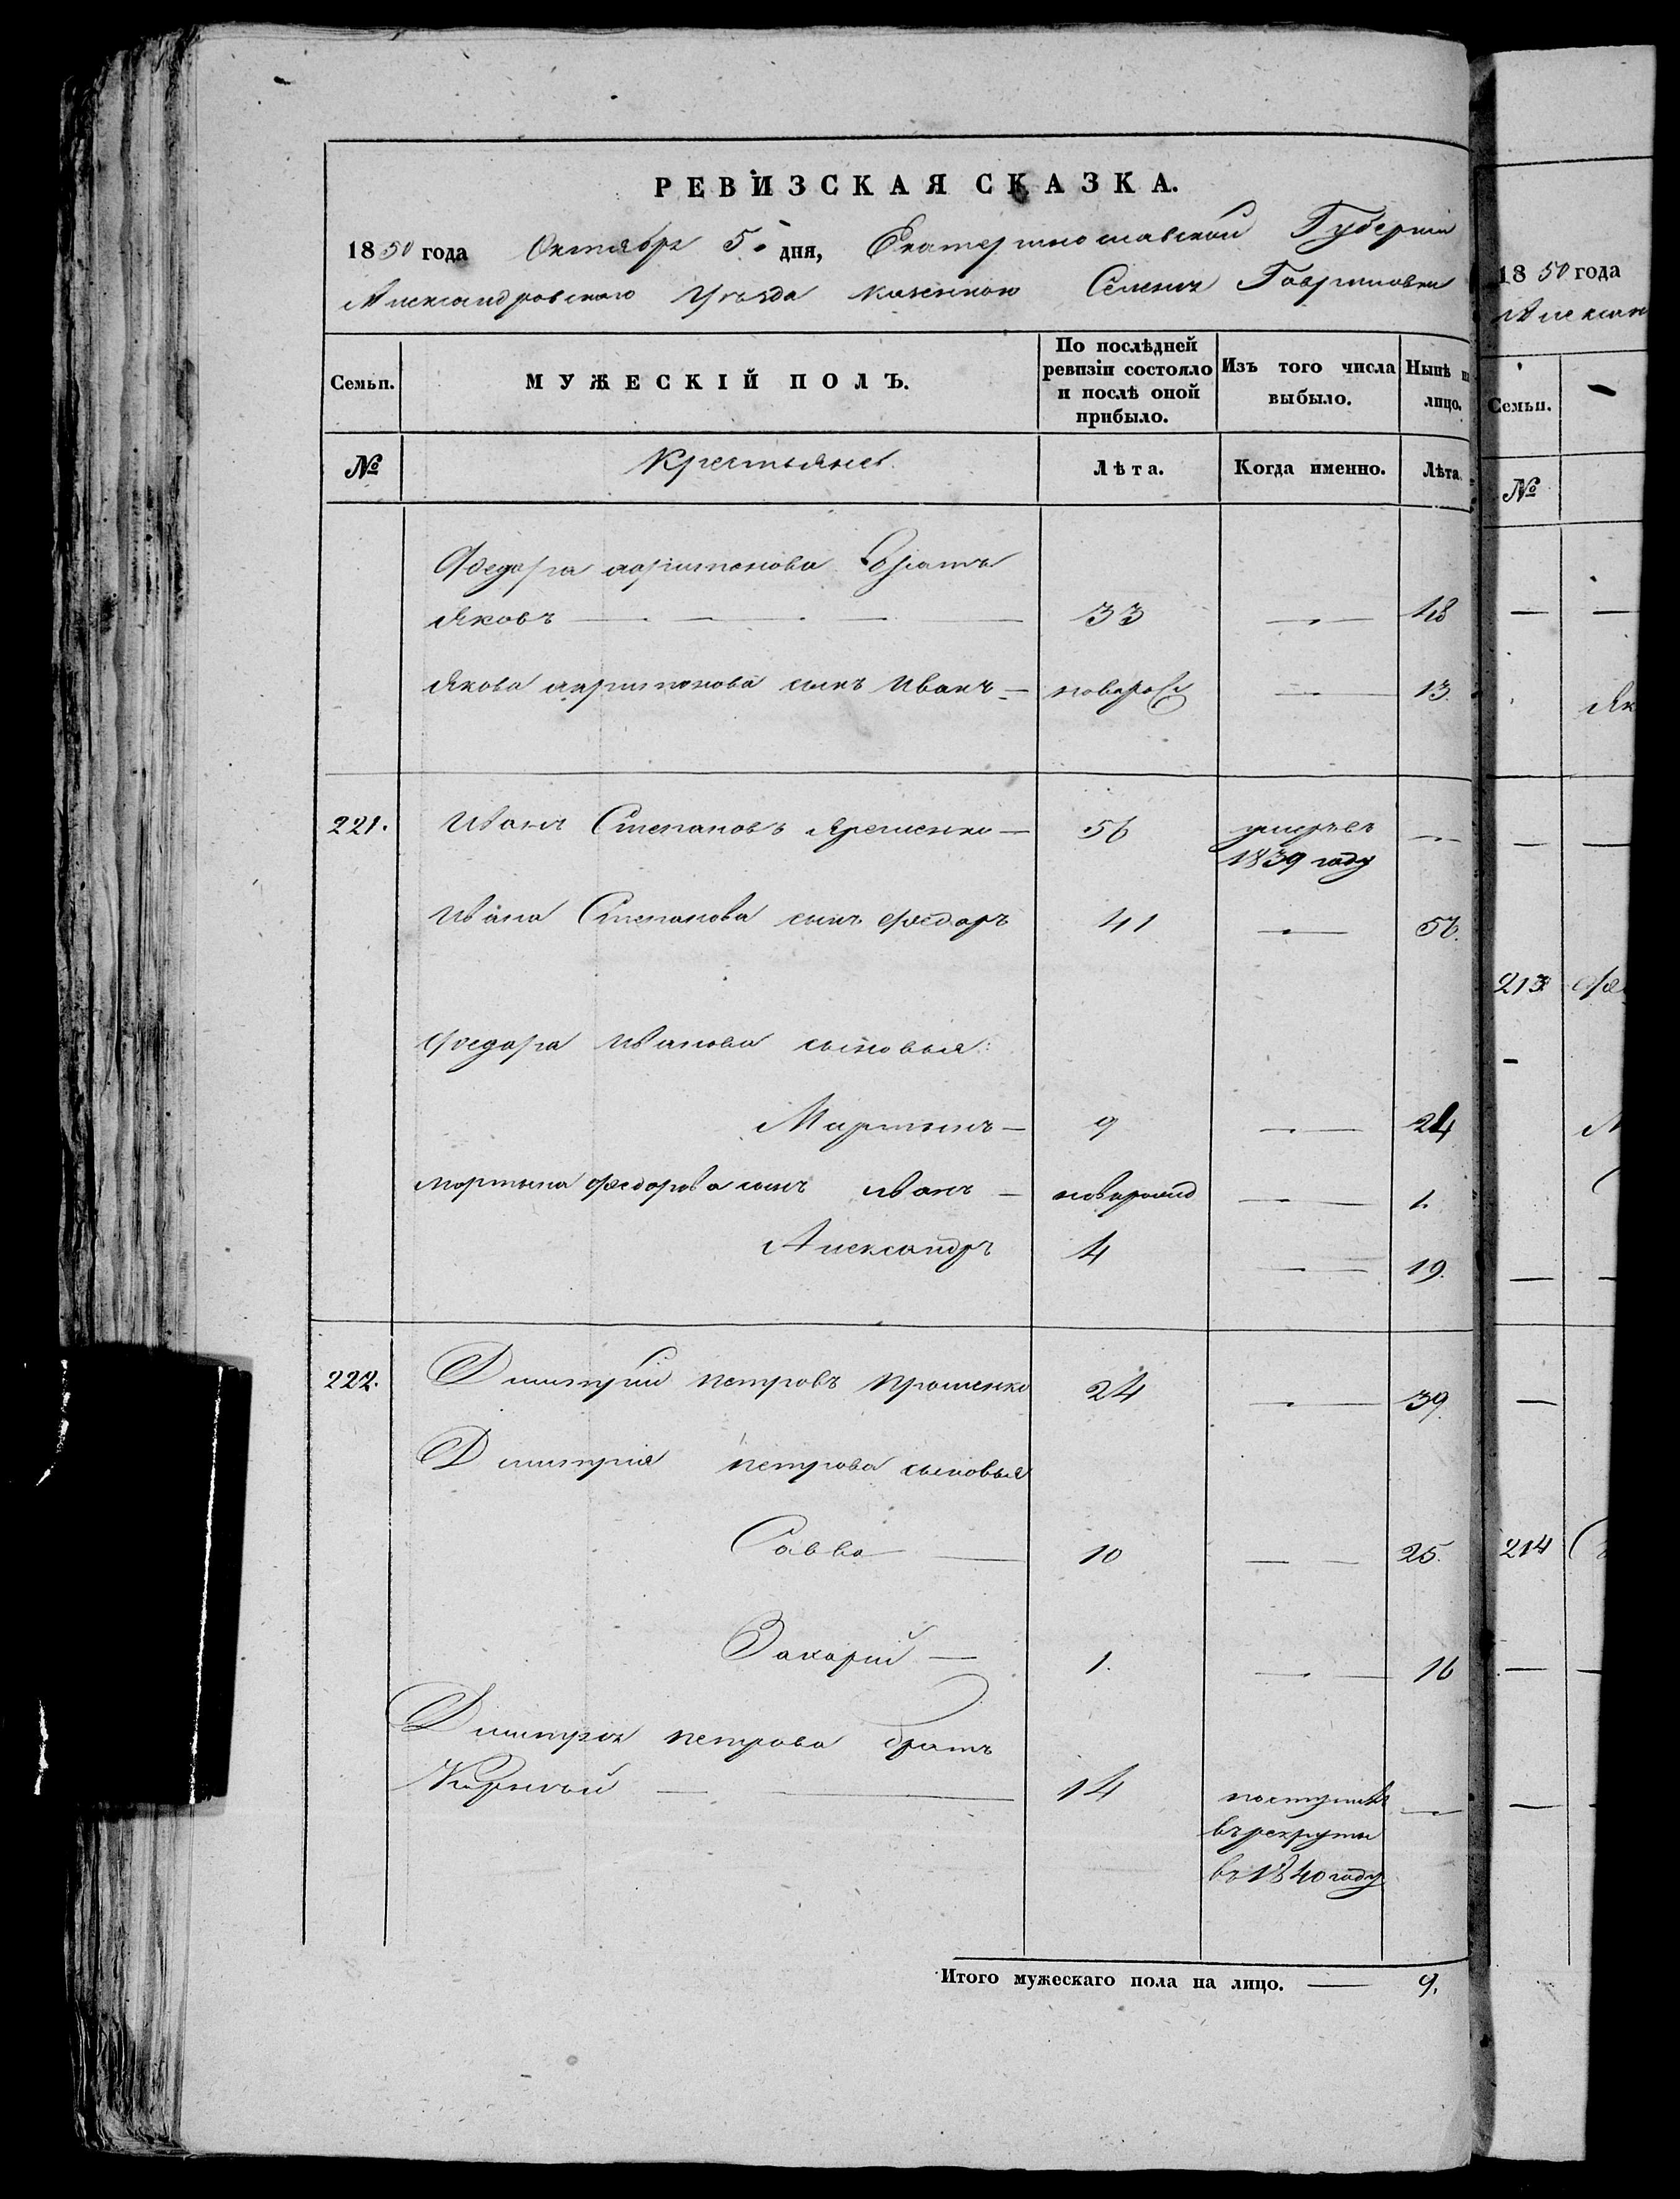 РЕВИЗСКАЯ СКАЗКА.
1850 года Октября 5 дня, Екатеринославской Губернии
Александровского Уезда казенного Селенія Гавриловки
Семьи. МУЖЕСКІЙ ПОЛЪ. По послѣдней ревизіи состояло и послѣ оной прибыло. Изъ того числа выбыло. Нынѣ на лицо.
№ Крестьяне. Лѣта. Когда именно. Лѣта.
Федора братъ
Яковъ 33 — 48
Якова сынъ Иванъ — новорож — 13.
221. Иванъ Степановъ Яременко — 56 умеръ въ —
1839 году
Ивана Степанова сынъ Федоръ 41 — 56.
Федора Иванова сыновья:
Мартынъ — 9 — 24
Мартына Федорова сынъ Иванъ — новорожд — 1.
Александръ 4 — 19.
222. Димитрий Петровъ 24 — 39.
Димитрия Петрова сыновья
Савва — 10 — — 25.
Захарий — 1. — 16
Димитрия Петрова братъ
14 поступилъ —
въ рекруты
въ 1840 году
Итого мужескаго пола на лицо. — 9.
1850 года
Алексан
Семьи.
№
Як
213 Фе
М
214